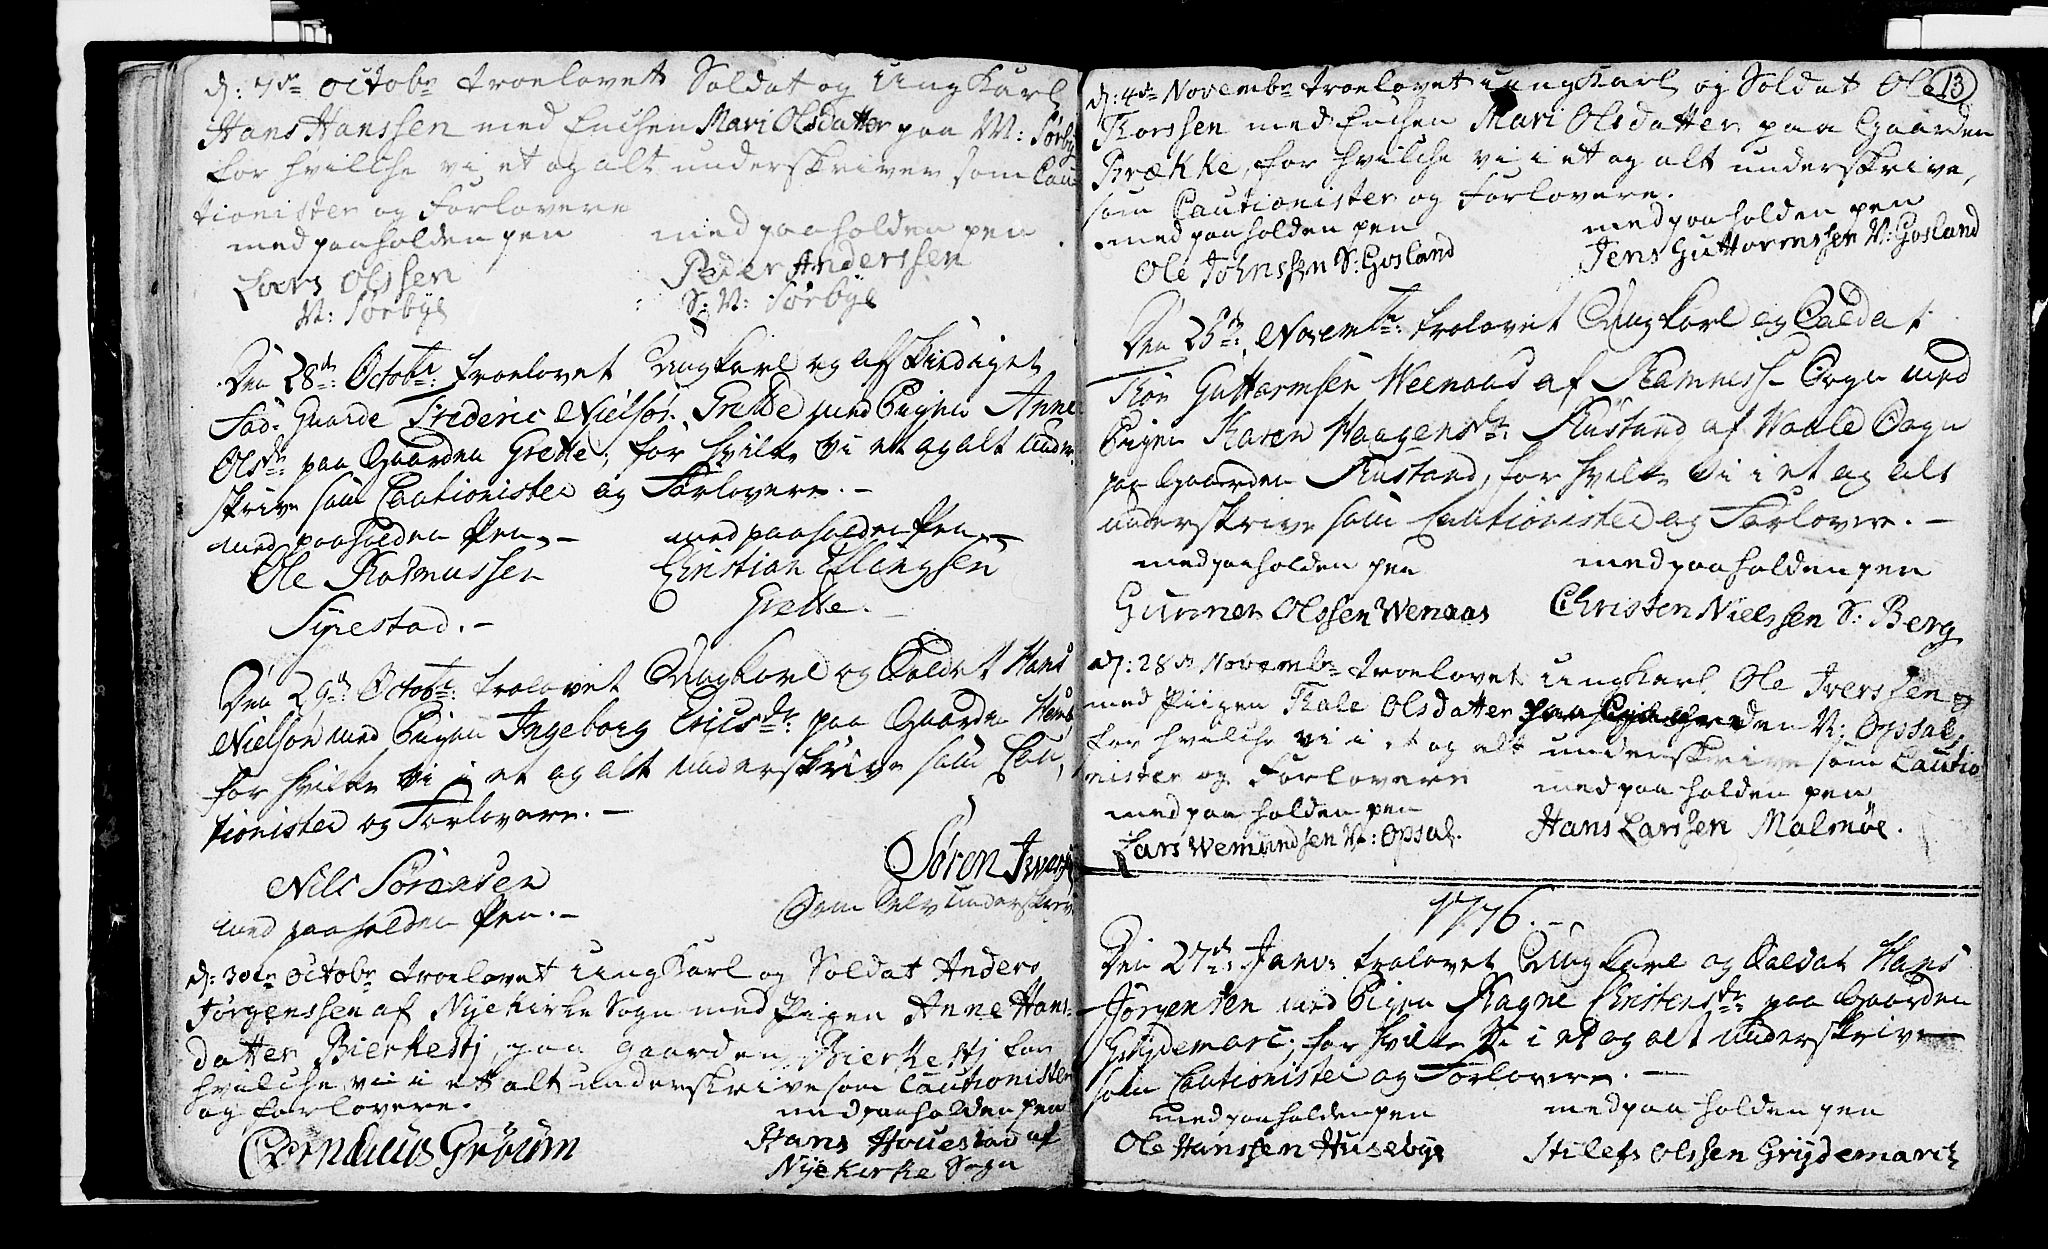 d: 7de octobr troelovet Soldat og Ung Karl
Hans Hanssen med Enchen Mari Olsdatter paa V: Sørby
for hvilche vi et og alt underskriver som Cau-
tionister og Forlovere
med paaholden pen med paaholden pen
Lars Olssen Peder Anderssen
V: Sørbye S: V: Sørbye
Den 28de Octobr: troelovet Ungkarl og afskediget
Sød: Guarde Frideric Nielsøn Grette med Pigen Anne
Olsdr: paa Gaarden Grette, for hvilke Vi et og alt under-
skrive som Cautionister og Forlovere.-
med paaholden Pen.- med paaholden Pen.-
Ole Rasmussen Christian Ellingsen
Syrestad.- Grette.-
Den 29de Octobr: trolovet Ungkarl og Soldat Hans
Nielsøn med Pigen Ingeborg Ericsdr: paa Gaarden
for hvilke Vi i et og alt underskrive som Cau-
tionister og Forlovere.-
Nils Sörensen Sören Iwers
med paaholden Pen.- Som Selv underskrev
d: 30te octobr troelovet ung Karl og Soldat Anders
Jørgenssen af Nyekirke Sogn med Pigen Anne Hans-
datter Bierkestj, paa gaarden Bierkestj for
hvilche vi i et alt underskrive som Cautionister
og forlovere. med paaholden pen
Cornelius Gröum Hans Houestad af
Nyekirke Sogn
13
d: 4de Novembr troelovet ung Karl og Soldat Ole
Thorssen med Enchen Mari Olsdatter paa Gaarden
Brække, for hvilche vi i et og alt underskrive,
som Cautionister og Forlovere.
med paaholden pen med paaholden pen
Ole Johnssen S: Gosland Jens Guttormssen V: Gosland
Den 25de: Novembr: trolovet Ungkarl og Soldat
Guttormsen Weenaas af Ramness Sogn med
Pigen Karen Haagensdr: Rustand af Waale Sogn
paa Gaarden Rustand, for hvilke Vi i et og alt
underskrive som Cautionister og Forlovere.-
med paaholden pen med paaholden pen
Gunner Olssen Wenaas Christen Nielssen S: Berg
d: 28de Novembr troelovet ung Karl Ole Iverssen
med Piigen Kale Olsdatter paa Gaarden V: Opsal,
for hvilche vi i et og alt underskrive som Cautio-
nister og Forlovere med paaholden pen
med paaholden pen
Lars Wemundsen V: Opsal. Hans Larssen Malmøe.
1776.-
Den 27de: Janv: trolovet Ung Karl og Soldat Hans
Jörgensen med Pigen Ragne Christensdr: paa Gaarden
Grydemarc; for hvilke Vi i et og alt underskrive
som Cautionister og Forlovere.-
med paaholden pen med paaholden pen
Ole Hanssen Husebye Stilefs Olssen Grydemarck